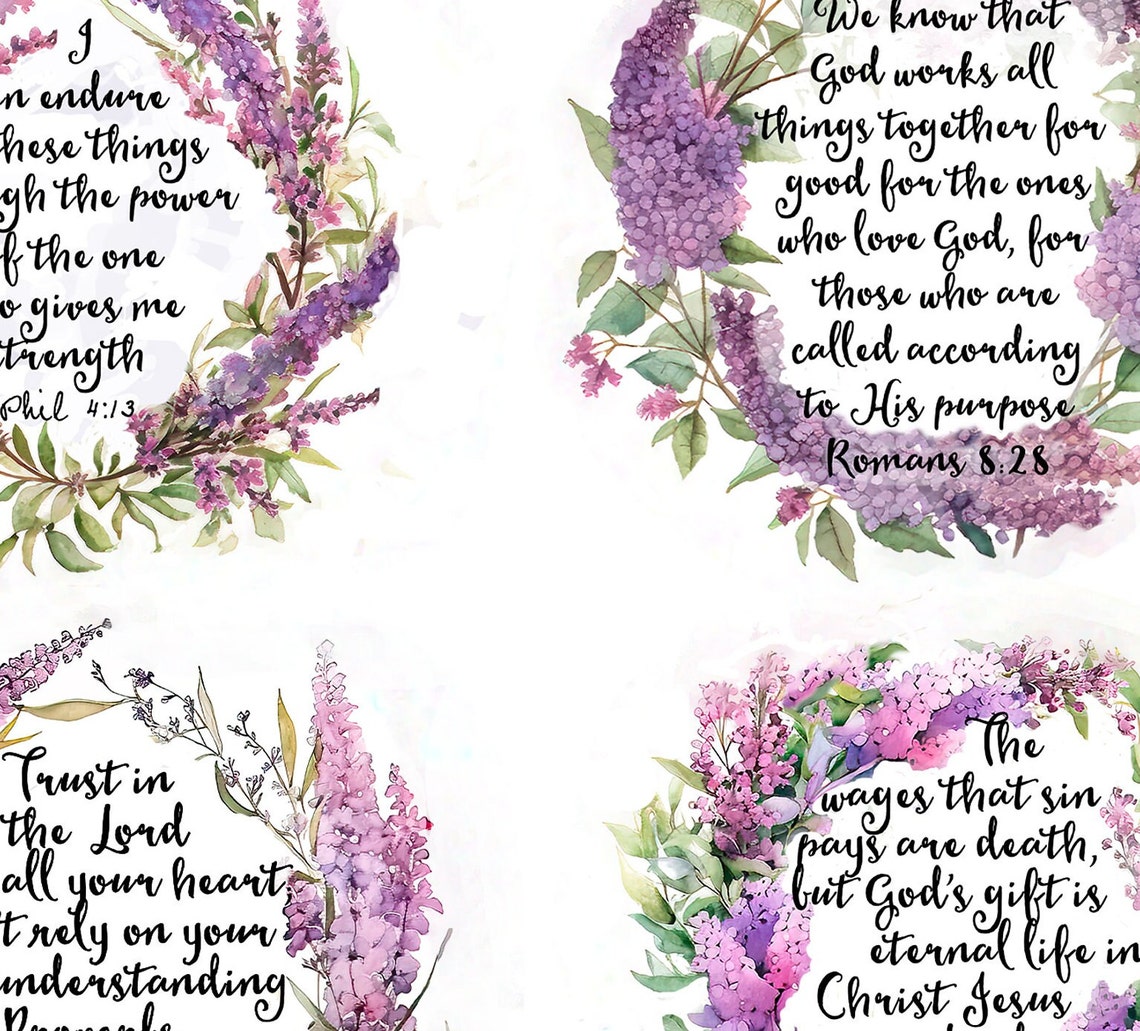 I
n endure
hese things
gh the power
f the one
o gives me
trength
Phil 4:13
We know that
God works all
things together for
good for the ones
who love God, for
those who are
called according
to His purpose
Romans 8:28
Trust in
the Lord
all your heart,
t rely on your
understanding
Proverbs
The
wages that sin
pays are death,
but God's gift is
eternal life in
Christ Jesus